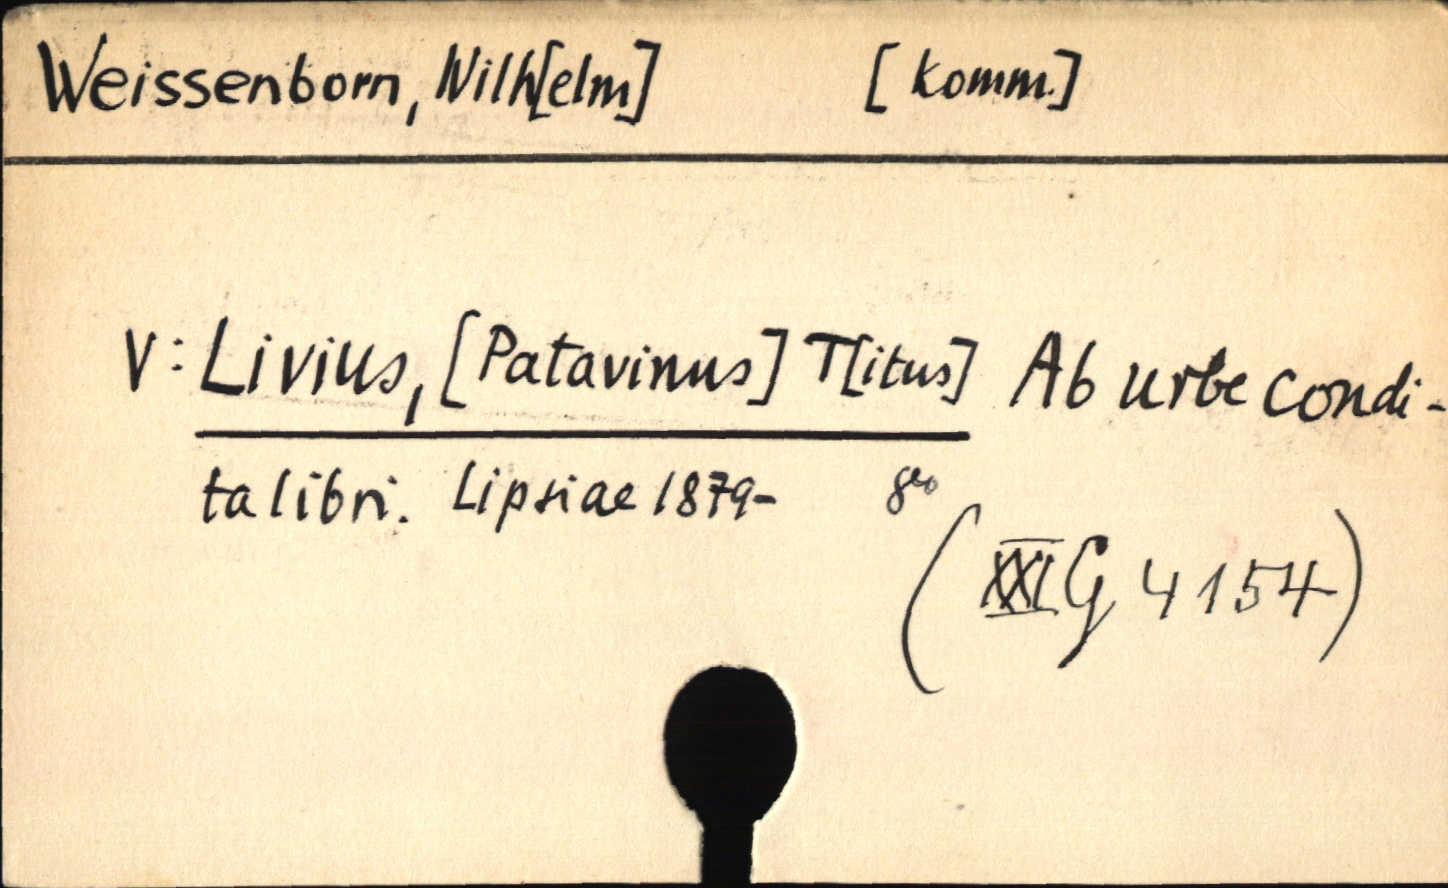 Weissenborn, Wilh[elm] [Komm.]
V: Livius, [Patavinus] T[itus] Ab urbe condi-
ta libri. Lipsiae 1879- 8vo
(XXI G 4154)